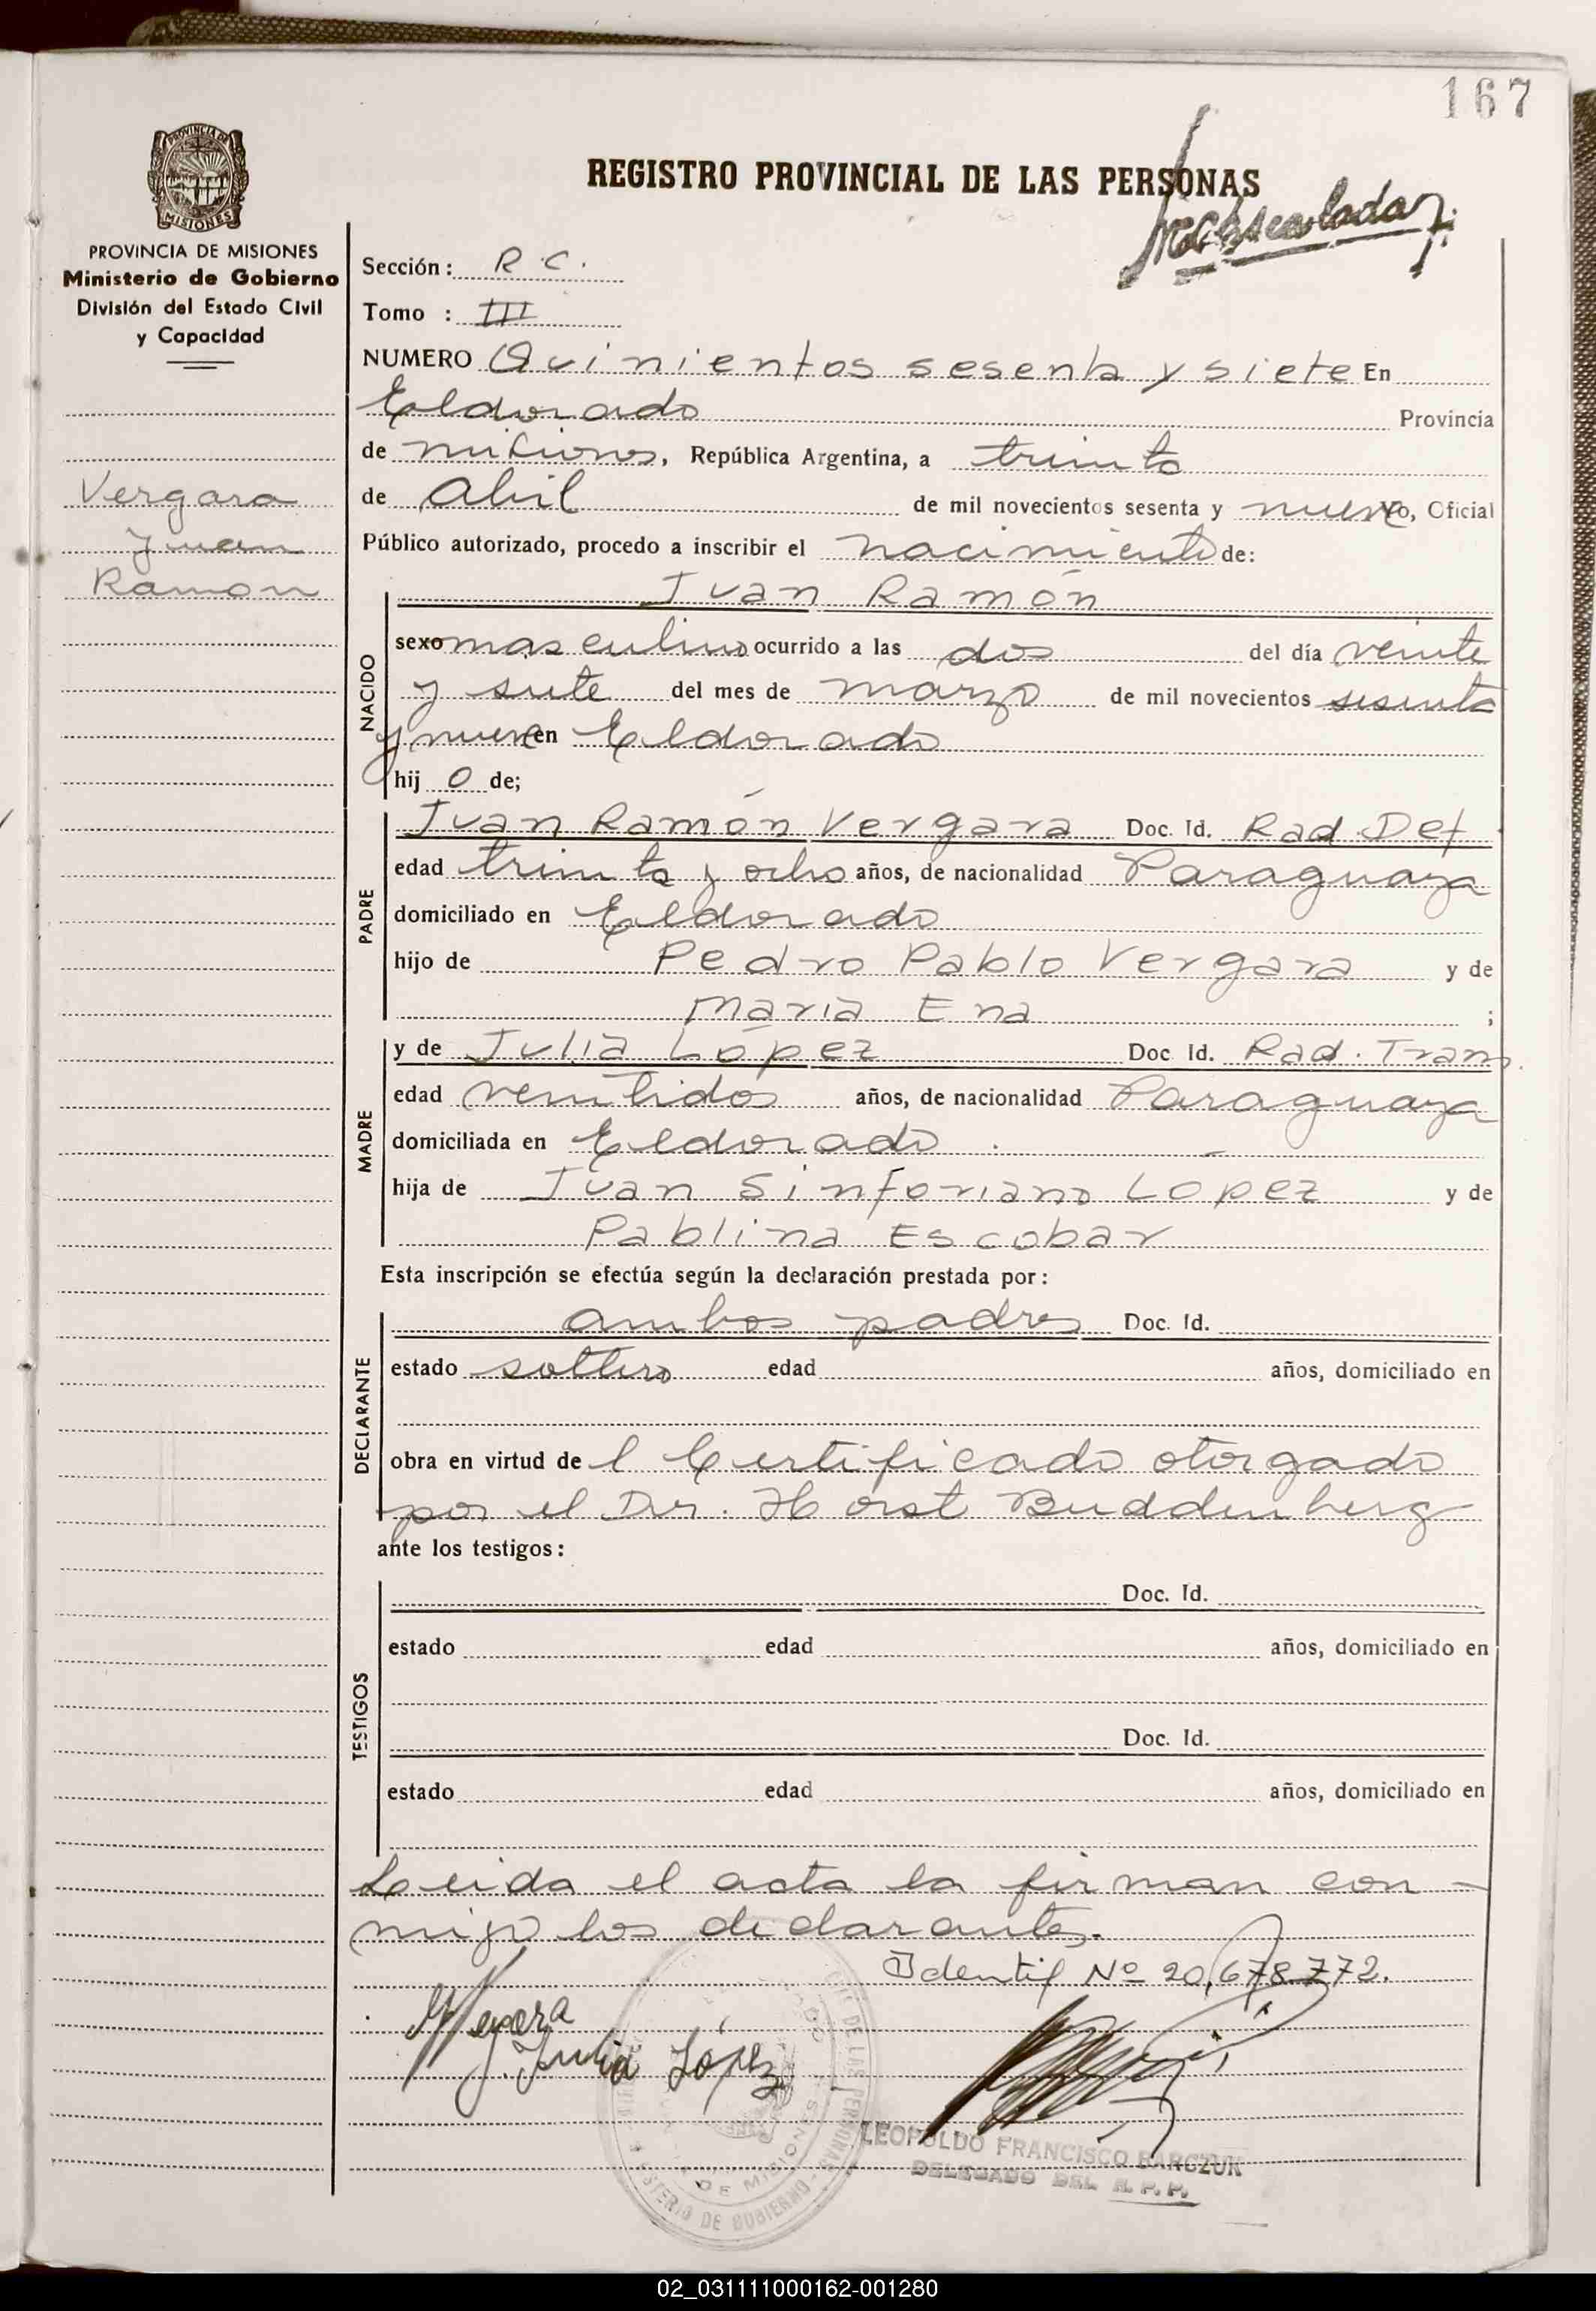 167
PROVINCIA DE
MISIONES
PROVINCIA DE MISIONES
Ministerio de Gobierno
División del Estado Civil
y Capacidad
Vergara
Juan
Ramon
REGISTRO PROVINCIAL DE LAS PERSONAS
Sección: R.C.
Tomo : III
NUMERO Quinientos sesenta y siete En
Eldorado Provincia
de misiones, República Argentina, a treinta
de abril de mil novecientos sesenta y nueve Yo, Oficial
Público autorizado, procedo a inscribir el nacimiento de:
Juan Ramón
NACIDO
sexo masculino ocurrido a las dos del día veinte
y siete del mes de marzo de mil novecientos sesenta
y nueve en Eldorado
hij o de;
PADRE
Juan Ramón Vergara Doc. Id. Rad. Def
edad treinta y ocho años, de nacionalidad Paraguaya
domiciliado en Eldorado
hijo de Pedro Pablo Vergara y de
María Ena ;
MADRE
y de Julia López Doc. Id. Rad. Trans.
edad veintidos años, de nacionalidad Paraguaya
domiciliada en Eldorado.
hija de Juan Sinforiano López y de
Pablina Escobar
Esta inscripción se efectúa según la declaración prestada por:
DECLARANTE
ambos padres Doc. Id.
estado soltero edad años, domiciliado en
obra en virtud de l Certificado otorgado
por el Dr. Horst Buddenberg
ante los testigos:
TESTIGOS
Doc. Id.
estado edad años, domiciliado en
Doc. Id.
estado edad años, domiciliado en
Leida el acta la firman con-
migo los declarantes.
Identif Nº 20,678.772.
Julia López
DE LAS PERSONAS
DE MISIONES
MINISTERIO DE GOBIERNO
LEOPOLDO FRANCISCO BARCZUK
DELEGADO DEL R. P. P.
02_031111000162-001280